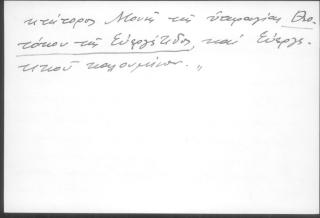 κτήτορος Μονῆς τῆς ὑπεραγίας Θεο-
τόκου τῆς Εὐεργέτιδος, καὶ Εὐεργε-
τικοῦ καλουμένου."